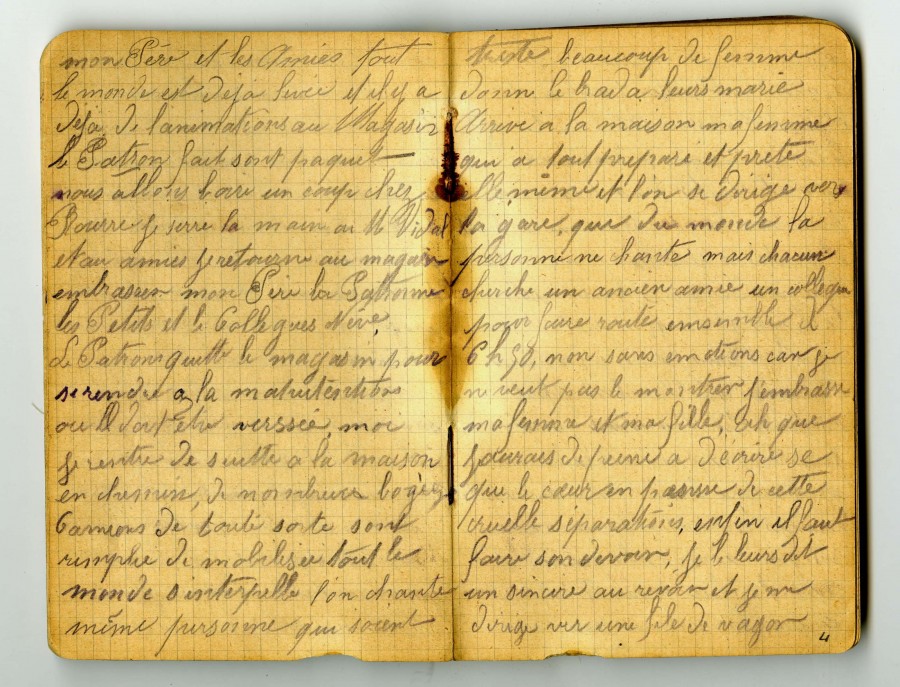 mon Père et les Amies tout
le monde est deja livée et il y a
deja de l'animations au Magasin
le Patron fait sont paquet
nous allons boire un coup chez
Bourre je serre la main au M Vidal
et au amies je retourne au magasin
embrasser mon Père la Patronne
les Petits et le Collegues Nive
Le Patron quitte le magasin pour
se rendre a la
ou Il doit être verssée, moi
je rentre de suitte a la maison
en chemin, de nombreux
Camions de toute sorte sont
remplie de mobilisée tout le
monde s'interpelle l'on chante
même personne qui soient
triste beaucoup de femme
donn le brada leurs marie
Arrivé a la maison ma femme
qui a tout preparé et prete
elle même et l'on se dirige vers
la gare, que du monde la
personne ne chante mais chacun
cherche un ancien amie un collegue
pour faire route emsemble a
6 h 50, non sans emotions car je
n veut pas le montrer j'embrasse
ma femme et ma fille, Ah que
j'aurais de peine a décrire se
que le cœur en passse de cette
cruelle séparations, enfin il faut
faire son devoir, je le leurs dit
un sincere au revoir et je me
dirige ver une file de vagon
4